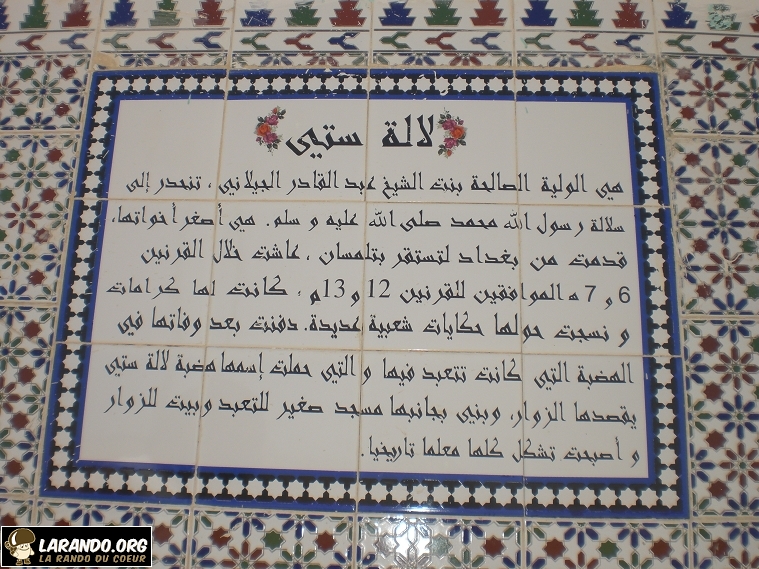 لالة ستي
هي الولية الصالحة بنت الشيخ عبد القادر الجيلاني ، تنحدر إلى
سلالة رسول الله محمد صلى الله عليه و سلم. هي أصغر أخواتها،
قدمت من بغداد لتستقر بتلمسان ، عاشت خلال القرنين
6 و 7 ه الموافقين للقرنين 12 و 13م ، كانت لها كرامات
و نسجت حولها حكايات شعبية عديدة. دفنت بعد وفاتها في
الهضبة التي كانت تتعبد فيها و التي حملت إسمها هضبة لالة ستي
يقصدها الزوار، وبني بجانبها مسجد صغير للتعبد وبيت للزوار
و أصبحت تشكل كلها معلما تاريخيا.
LARANDO.ORG
LA RANDO DU COEUR